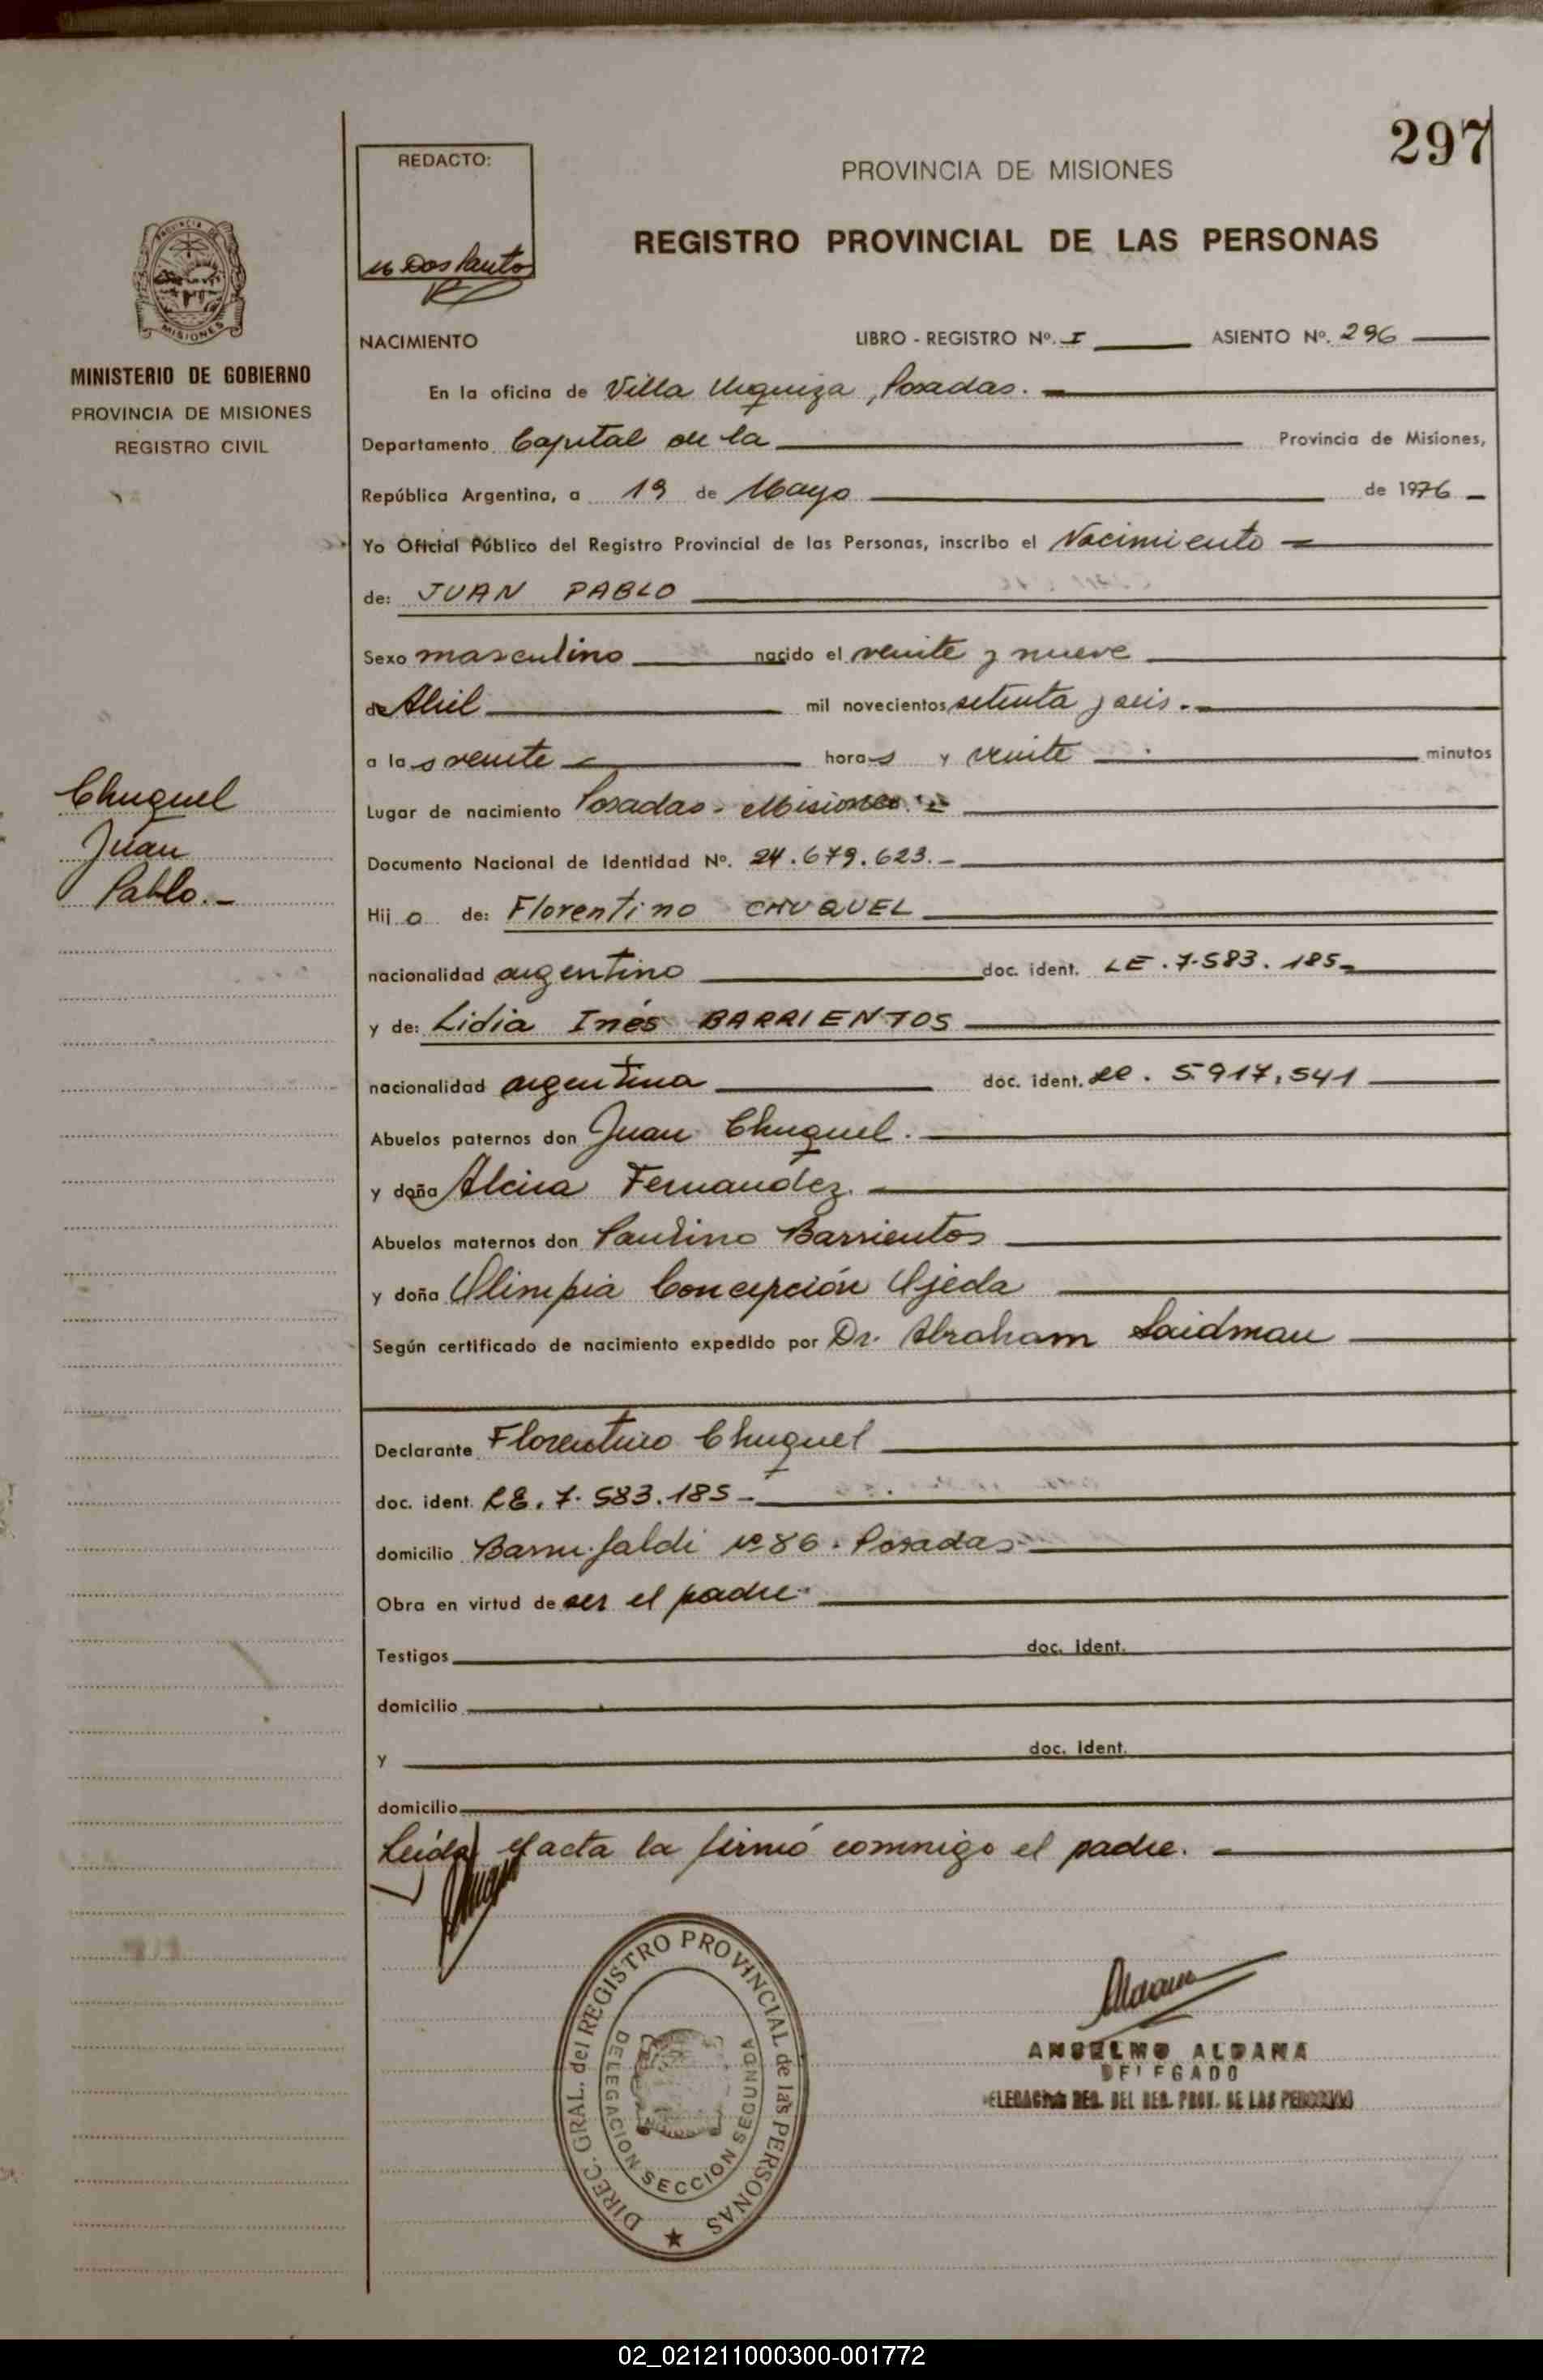 297
REDACTO:
PROVINCIA DE MISIONES
REGISTRO PROVINCIAL DE LAS PERSONAS
Dos Santos
PROVINCIA DE
MISIONES
MINISTERIO DE GOBIERNO
PROVINCIA DE MISIONES
REGISTRO CIVIL
NACIMIENTO LIBRO - REGISTRO Nº. I ASIENTO Nº. 296
En la oficina de Villa Urquiza, Posadas.
Departamento Capital de la Provincia de Misiones,
República Argentina, a 19 de Mayo de 1976
Yo Oficial Público del Registro Provincial de las Personas, inscribo el Nacimiento
de: JUAN PABLO
Sexo masculino nacido el veinte y nueve
de Abril mil novecientos setenta y seis.
a las veinte horas y veinte minutos
Chuquel
Juan
Pablo.-
Lugar de nacimiento Posadas - Misiones.
Documento Nacional de Identidad Nº. 24.679.623.-
Hijo de: Florentino CHUQUEL
nacionalidad argentino doc. ident. LE. 7.583.185-
y de: Lidia Inés BARRIENTOS
nacionalidad argentina doc. ident. LC. 5.917,541
Abuelos paternos don Juan Chuquel.
y doña Alcira Fernandez.
Abuelos maternos don Paulino Barrientos
y doña Olimpia Concepción Ojeda
Según certificado de nacimiento expedido por Dr. Abraham Saidman
Declarante Florentino Chuquel
doc. ident. LE. 7.583.185-
domicilio Nº 86. Posadas
Obra en virtud de ser el padre.
Testigos doc. ident.
domicilio
y doc. ident.
domicilio
Leída el acta la firmó conmigo el padre.
DIREC. GRAL. del REGISTRO PROVINCIAL de las PERSONAS
DELEGACION SECCION SEGUNDA
ANSELMO ALDANA
DELEGADO
02_021211000300-001772